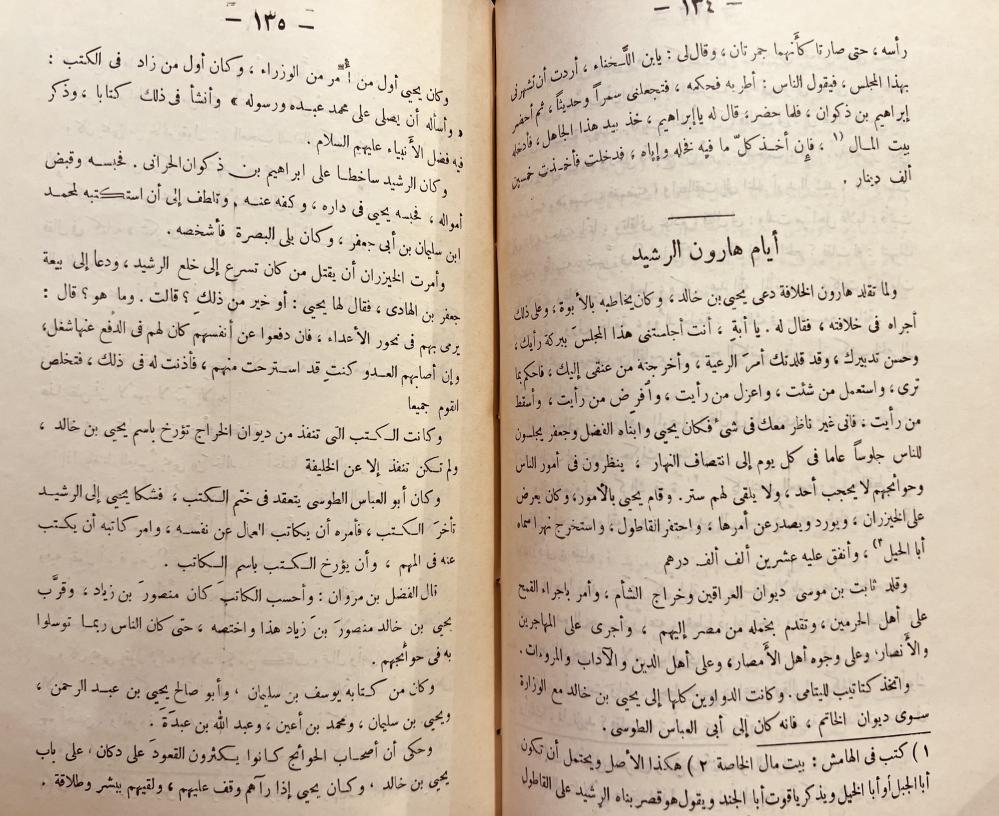 — ١٣٤ —
رأسه ، حتى صارتا كأنهما جمرتان ، وقال لى : يابن اللَّخناء ، أردت أن تشهرنى
بهذا المجلس ، فيقول الناس : أطربه فحكمه ، فتجعلنى سمراً وحديثاً ، ثم أحضر
إبراهيم بن ذكوان ، فلما حضر ، قال له ياإبراهيم ، خذ بيد هذا الجاهل ، فأدخله
بيت المال (١ ، فإن أخذ كلّ ما فيه فخله وإياه ، فدخلت فأخذت خمسين
ألف دينار .
أيام هارون الرشيد
ولما تقلد هارون الخلافة دعى يحيى بن خالد ، وكان يخاطبه بالأبوة ، وعلى ذلك
أجراه فى خلافته ، فقال له . يا أبةِ ، أنت أجلستنى هذا المجلس ببركة رأيك ،
وحسن تدبيرك ، وقد قلدتك أمرَ الرعية ، وأخرجته من عنقى إليك ، فاحكم بما
ترى ، واستعمل من شئت ، واعزل من رأيت ، وأفرِض من رأيت ، وأسقط
من رأيت ، فانى غير ناظر معك فى شىء فكان يحيى وابناه الفضل وجعفر يجلسون
للناس جلوساً عاما فى كل يوم إلى انتصاف النهار ، ينظرون فى أمور الناس
وحوائجهم لا يحجب أحد ، ولا يلقى لهم ستر . وقام يحيى بالأمور، وكان يعرض
على الخيزران ، ويورد ويصدر عن أمرها ، واحتفر القاطول ، واستخرج نهرا سماه
أبا الحيل (٢ ، وأنفق عليه عشرين ألف ألف درهم
وقلد ثابت بن موسى ديوان العراقين وخراج الشأم ، وأمر باجراء القمح
على أهل الحرمين ، وتقدم بحمله من مصر إليهم ، وأجرى على المهاجرين
والأنصار، وعلى وجوه أهل الأمصار، وعلى أهل الدين والآداب والمروءات .
واتخذ كتاتيب لليتامى . وكانت الدواوين كلها إلى يحيى بن خالد مع الوزارة
سوى ديوان الخاتم ، فانه كان إلى أبى العباس الطوسى .
١ ) كتب فى الهامش : بيت مال الخاصة ٢ ) هكذا الأصل ويحتمل أن تكون
أبا الجبل أو أبا الخيل ويذكر ياقوت أبا الجند ويقول هو قصر بناه الرشيد على القاطول
— ١٣٥ —
وكان يحيى أول من أُمّر من الوزراء ، وكان أول من زاد فى الكتب :
« وأسأله أن يصلى على محمد عبده ورسوله » وأنشأ فى ذلك كتابا ، وذكر
فيه فضل الأنبياء عليهم السلام .
وكان الرشيد ساخطا على ابراهيم بن ذكوان الحرانى . فحبسه وقبض
أمواله ، فحبسه يحيى فى داره ، وكفه عنه ، وتلطف إلى أن استكتبه لمحمد
ابن سليمان بن أبى جعفر ، وكان يلى البصرة فأشخصه .
وأمرت الخيزران أن يقتل من كان تسرع إلى خلع الرشيد ، ودعا إلى بيعة
جعفر بن الهادى ، فقال لها يحيى : أو خير من ذلكِ ؟ قالت . وما هو ؟ قال :
يرمى بهم فى نحور الأعداء ، فان دفعوا عن أنفسهم كان لهم فى الدفع عنها شغل،
وإن أصابهم العدو كنتِ قد استرحت منهم ، فأذنت له فى ذلك ، فتخلص
القوم جميعا
وكانت الكتب التى تنفذ من ديوان الخراج تؤرخ باسم يحيى بن خالد ،
ولم تكن تنفذ إلا عن الخليفة
وكان أبو العباس الطوسى يتعقد فى ختم الكتب ، فشكا يحيى إلى الرشيد
تأخرَ الكتب ، فأمره أن يكاتب العمال عن نفسه ، وامر كاتبه أن يكتب
عنه فى المهم ، وأن يؤرخ الكتب باسم الكاتب .
قال الفضل بن مروان : وأحسب الكاتبَ كان منصورَ بن زياد ، وقرَّب
يحيى بن خالد منصورَ بنَ زياد هذا واختصه ، حتى كان الناس ربما توسلوا
به فى حوائجهم .
وكان من كتابه يوسف بن سليمان ، وأبو صالح يحيى بن عبد الرحمن ،
ويحيى بن سليمان ، ومحمد بن أعين ، وعبد الله بن عبدَة .
وحكى أن أصحاب الحوائج كانوا يكثرون القعودَ على دكان ، على باب
يحيى بن خالد ، وكان يحيى إذا رآهم وقف عليهم ، ولقيهم ببشر وطلاقة .